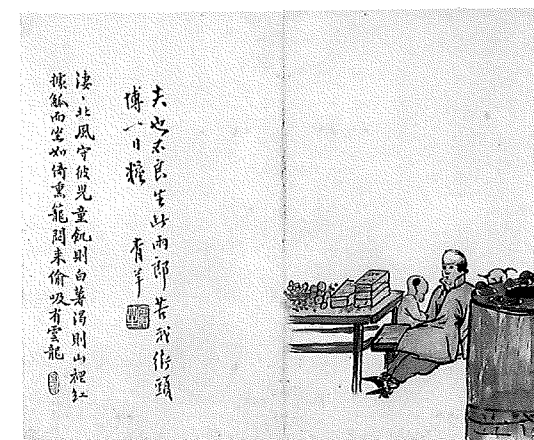 夫也不良生此兩郎苦我街頭
博八日糧 青羊
淒〻北風守彼兒童飢則白薯渴則山裡紅
據觚而坐如倚熏籠閒来偷吸有雲龍